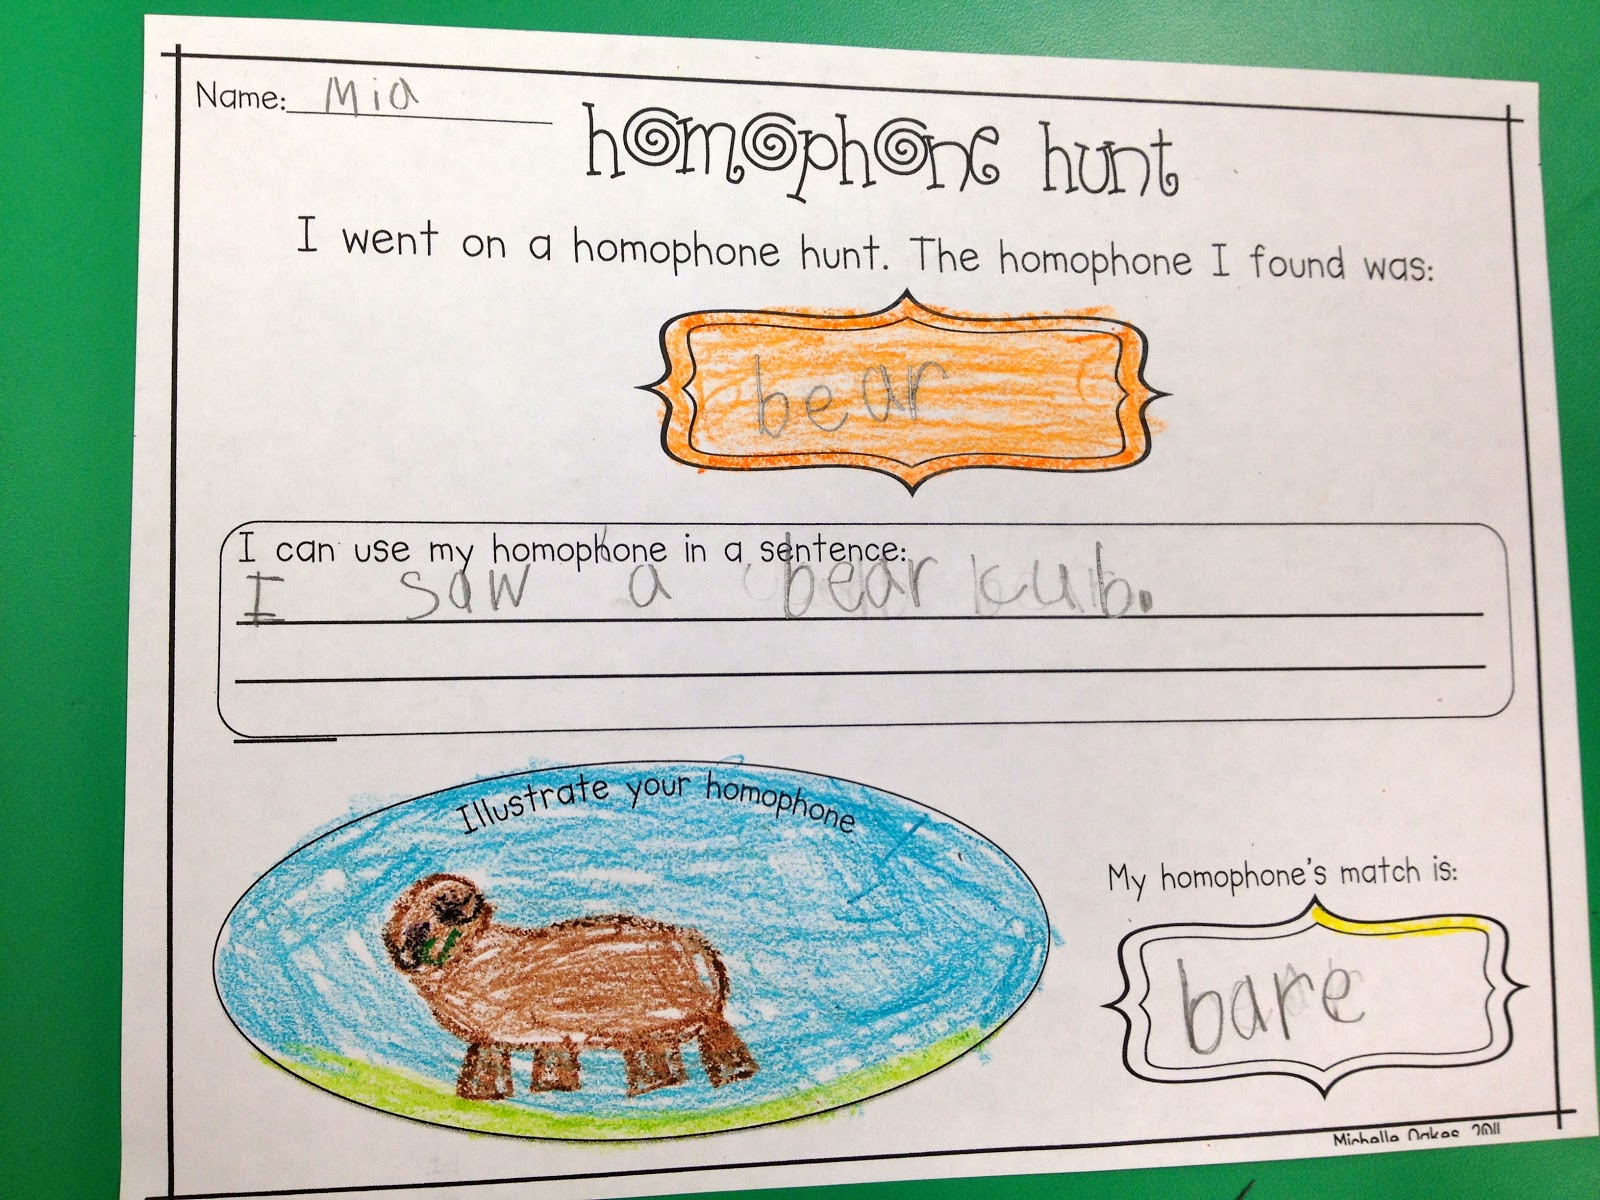 Name: Mia
homophone hunt
I went on a homophone hunt. The homophone I found was:
bear
I can use my homophone in a sentence:
I saw a bear cub.
Illustrate your homophone
My homophone's match is:
bare
Michelle Oakes 2011